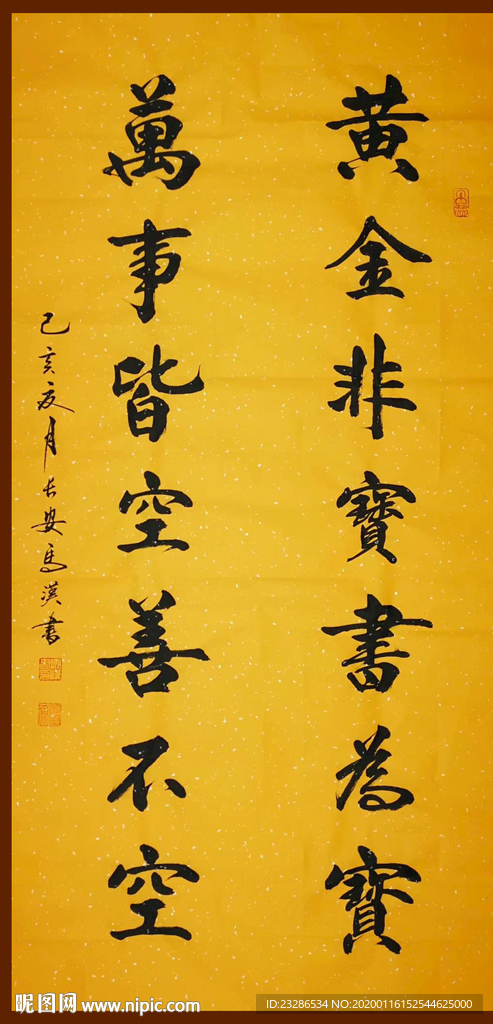 黄金非寶書為寶
萬事皆空善不空
己亥夏月长安馬漢書
昵图网 www.nipic.com
ID:23286534 NO:20200116152544625000